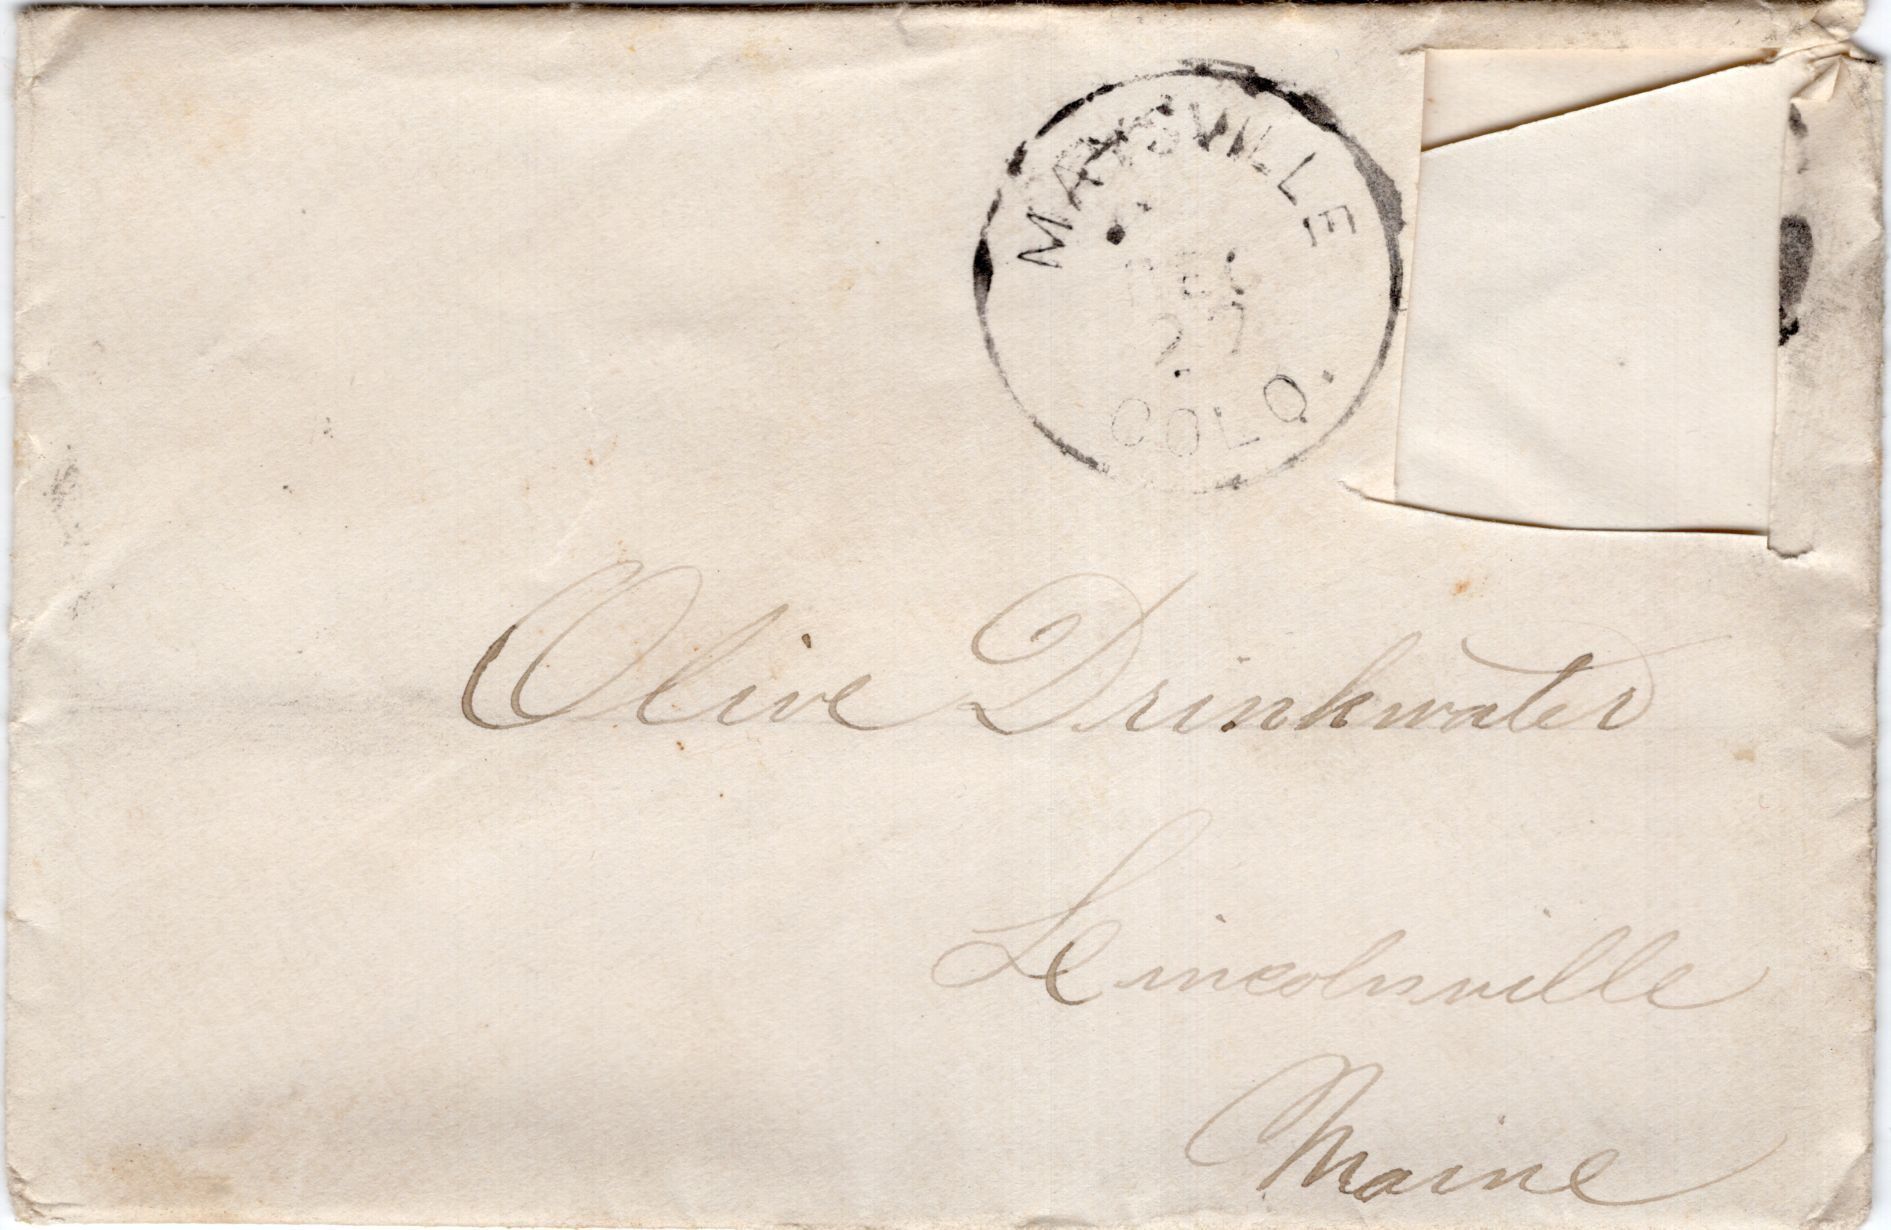 MAYSVILLE
DEC
27
COLO.
Olive Drinkwater
Lincolnville
Maine